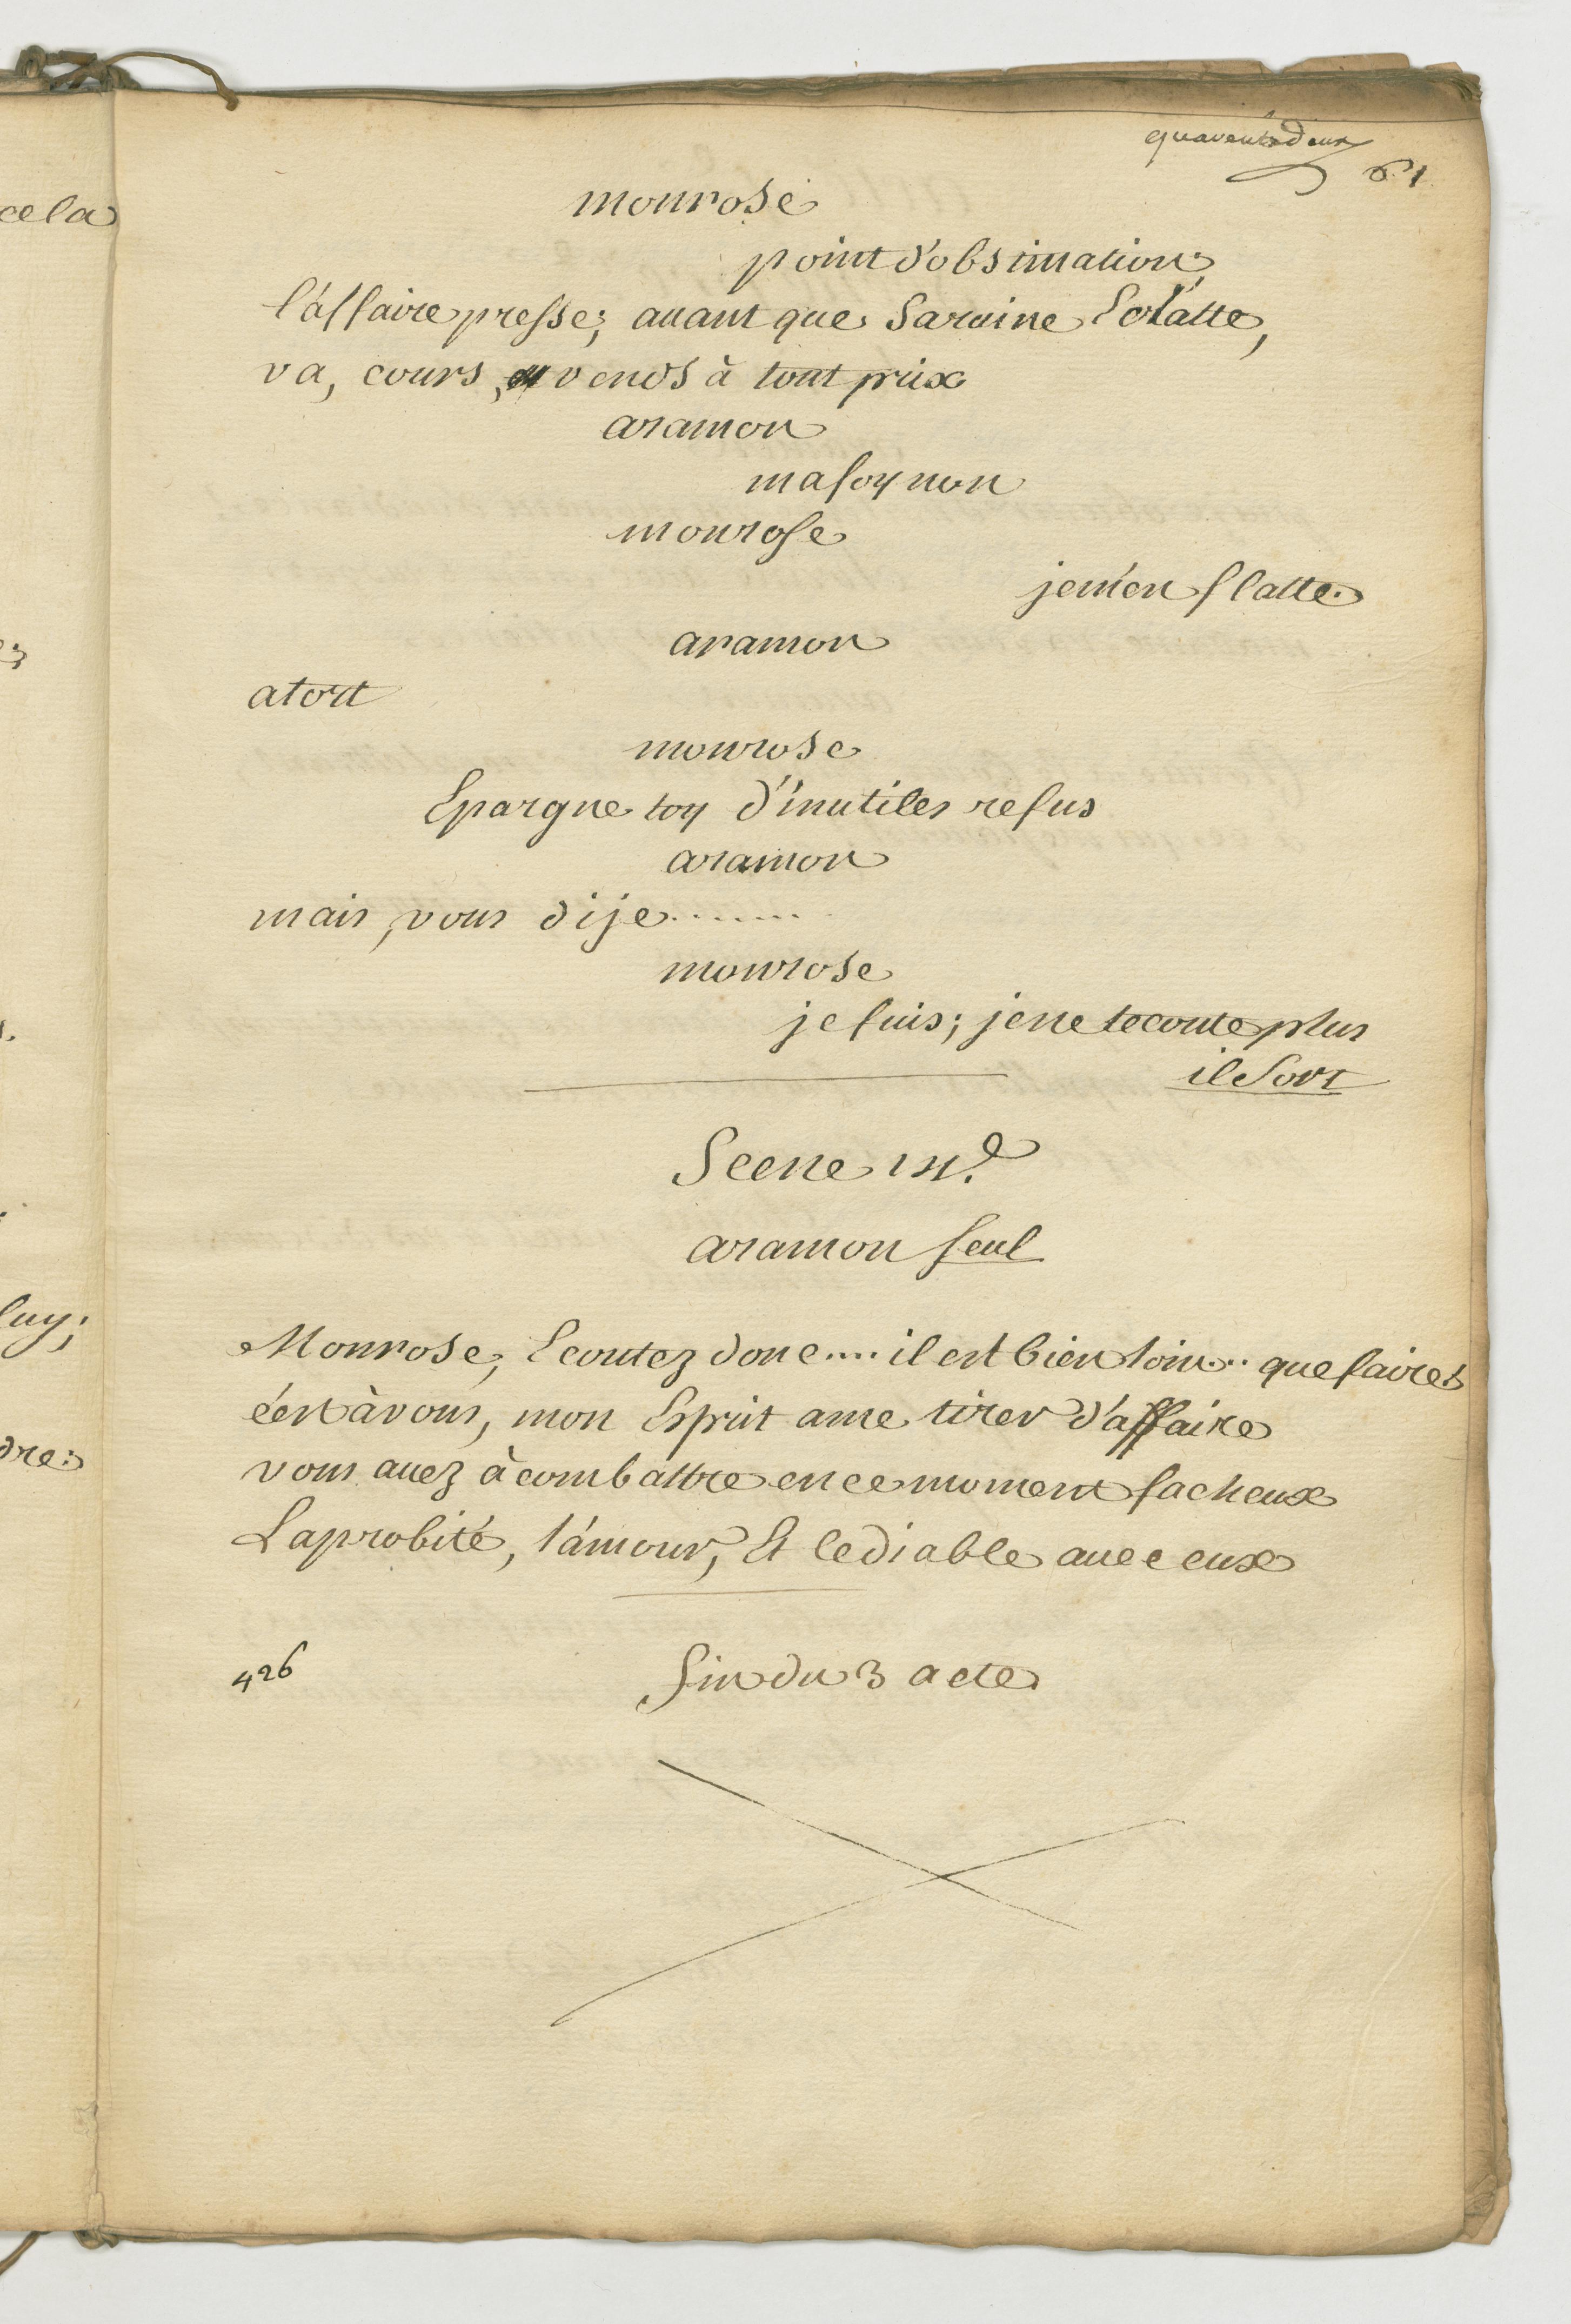 quarente deux
61
monrose
point d'obstination;
l'affaire presse; auant que Saruine Eclatte,
va, cours, vends à tout prix
aramon
ma foy non
monrose
je m'en flatte.
aramon
a tort
monrose
Epargne toy d'inutiles refus
aramon
mais, vous dije.......
monrose
je fuis; je ne tecoute plus
il Sort
Scene 14.e
aramon seul
Monrose, Ecoutez donc.... il est bien loin... que faire?
c'est à vous, mon Esprit a me tirer d'affaire
vous auez à combattre en ce moment facheux
La probité, l'amour, Et le diable auec eux
426
fin du 3 acte
cela
luy;
dre: